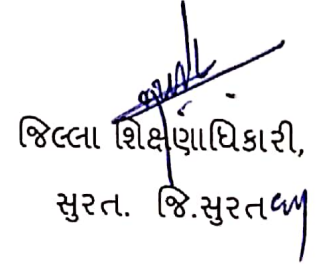 જિલ્લા શિક્ષણાધિકારી,
સુરત. જિ.સુરત